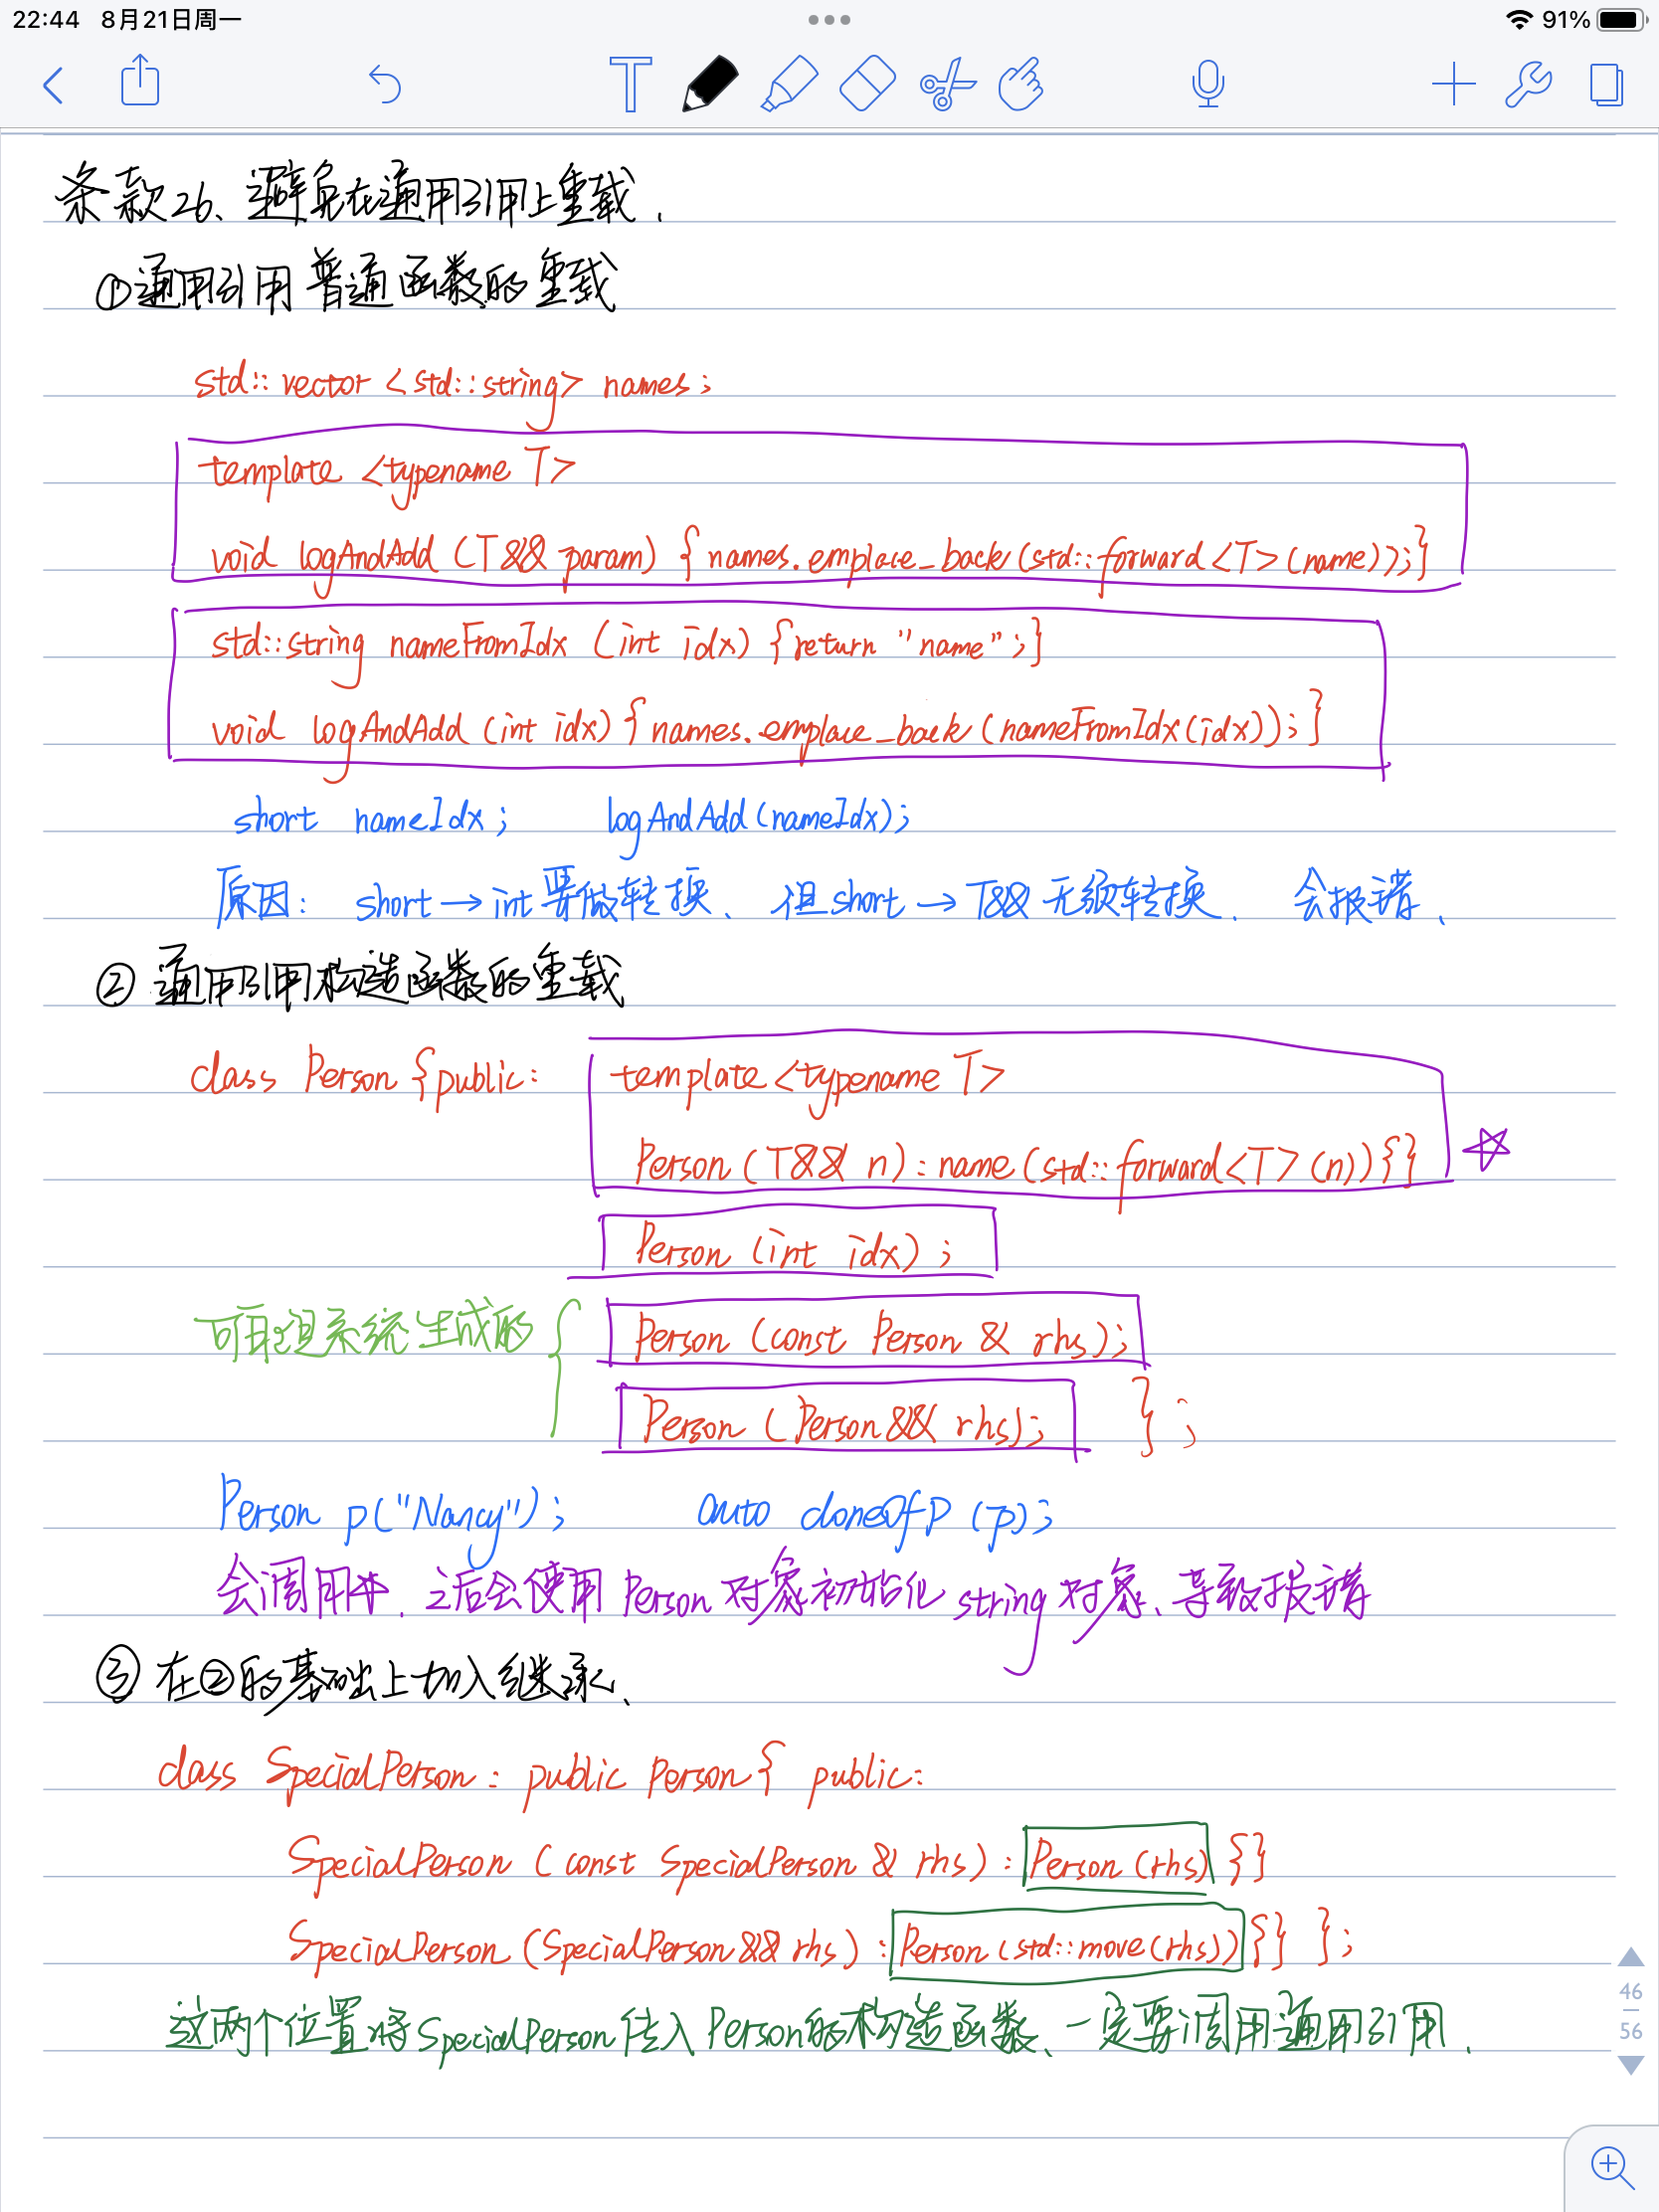 22:44 8月21日周一
91%
T
条款26、避免在通用引用上重载.
①通用引用普通函数的重载
std::vector <std::string> names;
template <typename T>
void logAndAdd (T&& param) { names.emplace_back(std::forward<T>(name));}
std::string nameFromIdx (int idx) {return "name";}
void logAndAdd (int idx) { names.emplace_back (nameFromIdx(idx));}
short nameIdx; logAndAdd(nameIdx);
原因: short→int要做转换、但short→T&&无须转换. 会报错.
② 通用引用构造函数的重载
class Person {public: template <typename T>
Person (T&& n): name (std::forward<T>(n)){}
☆
Person (int idx);
可能是系统生成的 { Person (const Person & rhs);
Person (Person&& rhs); };
Person p("Nancy"); auto cloneOfP (p);
会调用☆. 之后会使用 Person 对象初始化 string 对象、导致报错
③ 在②的基础上加入继承、
class SpecialPerson: public Person{ public:
SpecialPerson (const SpecialPerson & rhs): Person (rhs) {}
SpecialPerson (SpecialPerson&& rhs): Person (std::move(rhs)) {} };
这两个位置将SpecialPerson传入Person的构造函数、一定要调用通用引用.
46
56